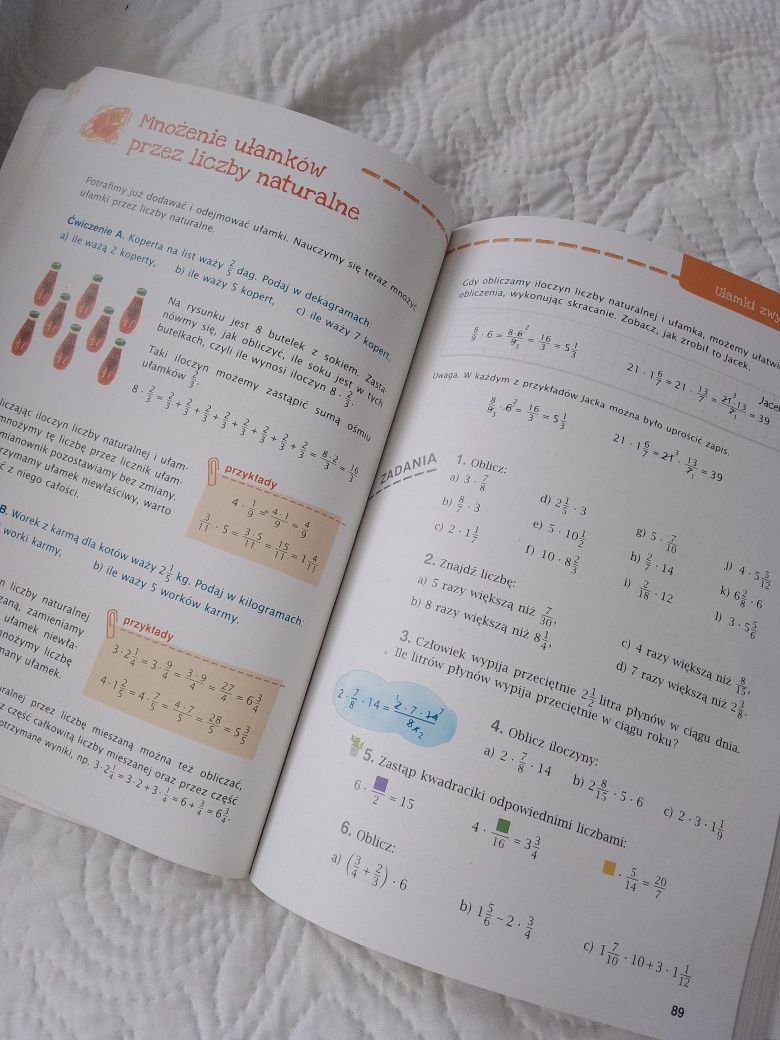 Mnożenie ułamków
przez liczby naturalne
Potrafimy już dodawać i odejmować ułamki. Nauczymy się teraz mnożyć
ułamki przez liczby naturalne.
Ćwiczenie A. Koperta na list waży 2/5 dag. Podaj w dekagramach:
a) ile ważą 2 koperty, b) ile waży 5 kopert, c) ile waży 7 kopert.
Na rysunku jest 8 butelek z sokiem. Zasta-
nówmy się, jak obliczyć, ile soku jest w tych
butelkach, czyli ile wynosi iloczyn 8 · 2/3.
Taki iloczyn możemy zastąpić sumą ośmiu
ułamków 2/3.
8 · 2/3 = 2/3 + 2/3 + 2/3 + 2/3 + 2/3 + 2/3 + 2/3 + 2/3 = 8·2/3 = 16/3
liczając iloczyn liczby naturalnej i ułam-
mnożymy tę liczbę przez licznik ułam-
mianownik pozostawiamy bez zmiany.
rzymamy ułamek niewłaściwy, warto
ć z niego całości.
przykłady
4 · 1/9 = 4·1/9 = 4/9
3/11 · 5 = 3·5/11 = 15/11 = 1 4/11
B. Worek z karmą dla kotów waży 2 1/5 kg. Podaj w kilogramach:
worki karmy, b) ile waży 5 worków karmy.
n liczby naturalnej
zaną, zamieniamy
ułamek niewła-
nożymy liczbę
many ułamek.
przykłady
3 · 2 1/4 = 3 · 9/4 = 3·9/4 = 27/4 = 6 3/4
4 · 1 2/5 = 4 · 7/5 = 4·7/5 = 28/5 = 5 3/5
uralnej przez liczbę mieszaną można też obliczać,
z część całkowitą liczby mieszanej oraz przez część
otrzymane wyniki, np. 3 · 2 1/4 = 3 · 2 + 3 · 1/4 = 6 + 3/4 = 6 3/4.
Ułamki zwy
Gdy obliczamy iloczyn liczby naturalnej i ułamka, możemy ułatwi
obliczenia, wykonując skracanie. Zobacz, jak zrobił to Jacek.
8/9 · 6 = 8·6 2/9 3 = 16/3 = 5 1/3
21 · 1 6/7 = 21 · 13/7 = 21 3·13/7 1 = 39
Jacek
Uwaga. W każdym z przykładów Jacka można było uprościć zapis.
8/9 3 · 6 2 = 16/3 = 5 1/3
21 · 1 6/7 = 21 3 · 13/7 1 = 39
ZADANIA
1. Oblicz:
a) 3 · 7/8
b) 8/7 · 3
c) 2 · 1 1/7
d) 2 1/5 · 3
e) 5 · 10 1/2
f) 10 · 8 2/3
g) 5 · 7/10
h) 2/7 · 14
i) 2/18 · 12
j) 4 · 5 5/12
k) 6 2/8 · 6
l) 3 · 5 5/6
2. Znajdź liczbę:
a) 5 razy większą niż 7/30,
b) 8 razy większą niż 8 1/4,
c) 4 razy większą niż 8/15,
d) 7 razy większą niż 2 3/8.
3. Człowiek wypija przeciętnie 2 1/2 litra płynów w ciągu dnia.
Ile litrów płynów wypija przeciętnie w ciągu roku?
2 · 7/8 · 14 = 1 2 · 7 · 14 7/8 4 2
4. Oblicz iloczyny:
a) 2 · 7/8 · 14 b) 2 8/15 · 5 · 6 c) 2 · 3 · 1 1/9
5. Zastąp kwadraciki odpowiednimi liczbami:
6 · /2 = 15
4 · /16 = 3 3/4
· 5/14 = 20/7
6. Oblicz:
a) (3/4 + 2/3) · 6
b) 1 5/6 − 2 · 3/4
c) 1 7/10 · 10 + 3 · 1 1/12
89